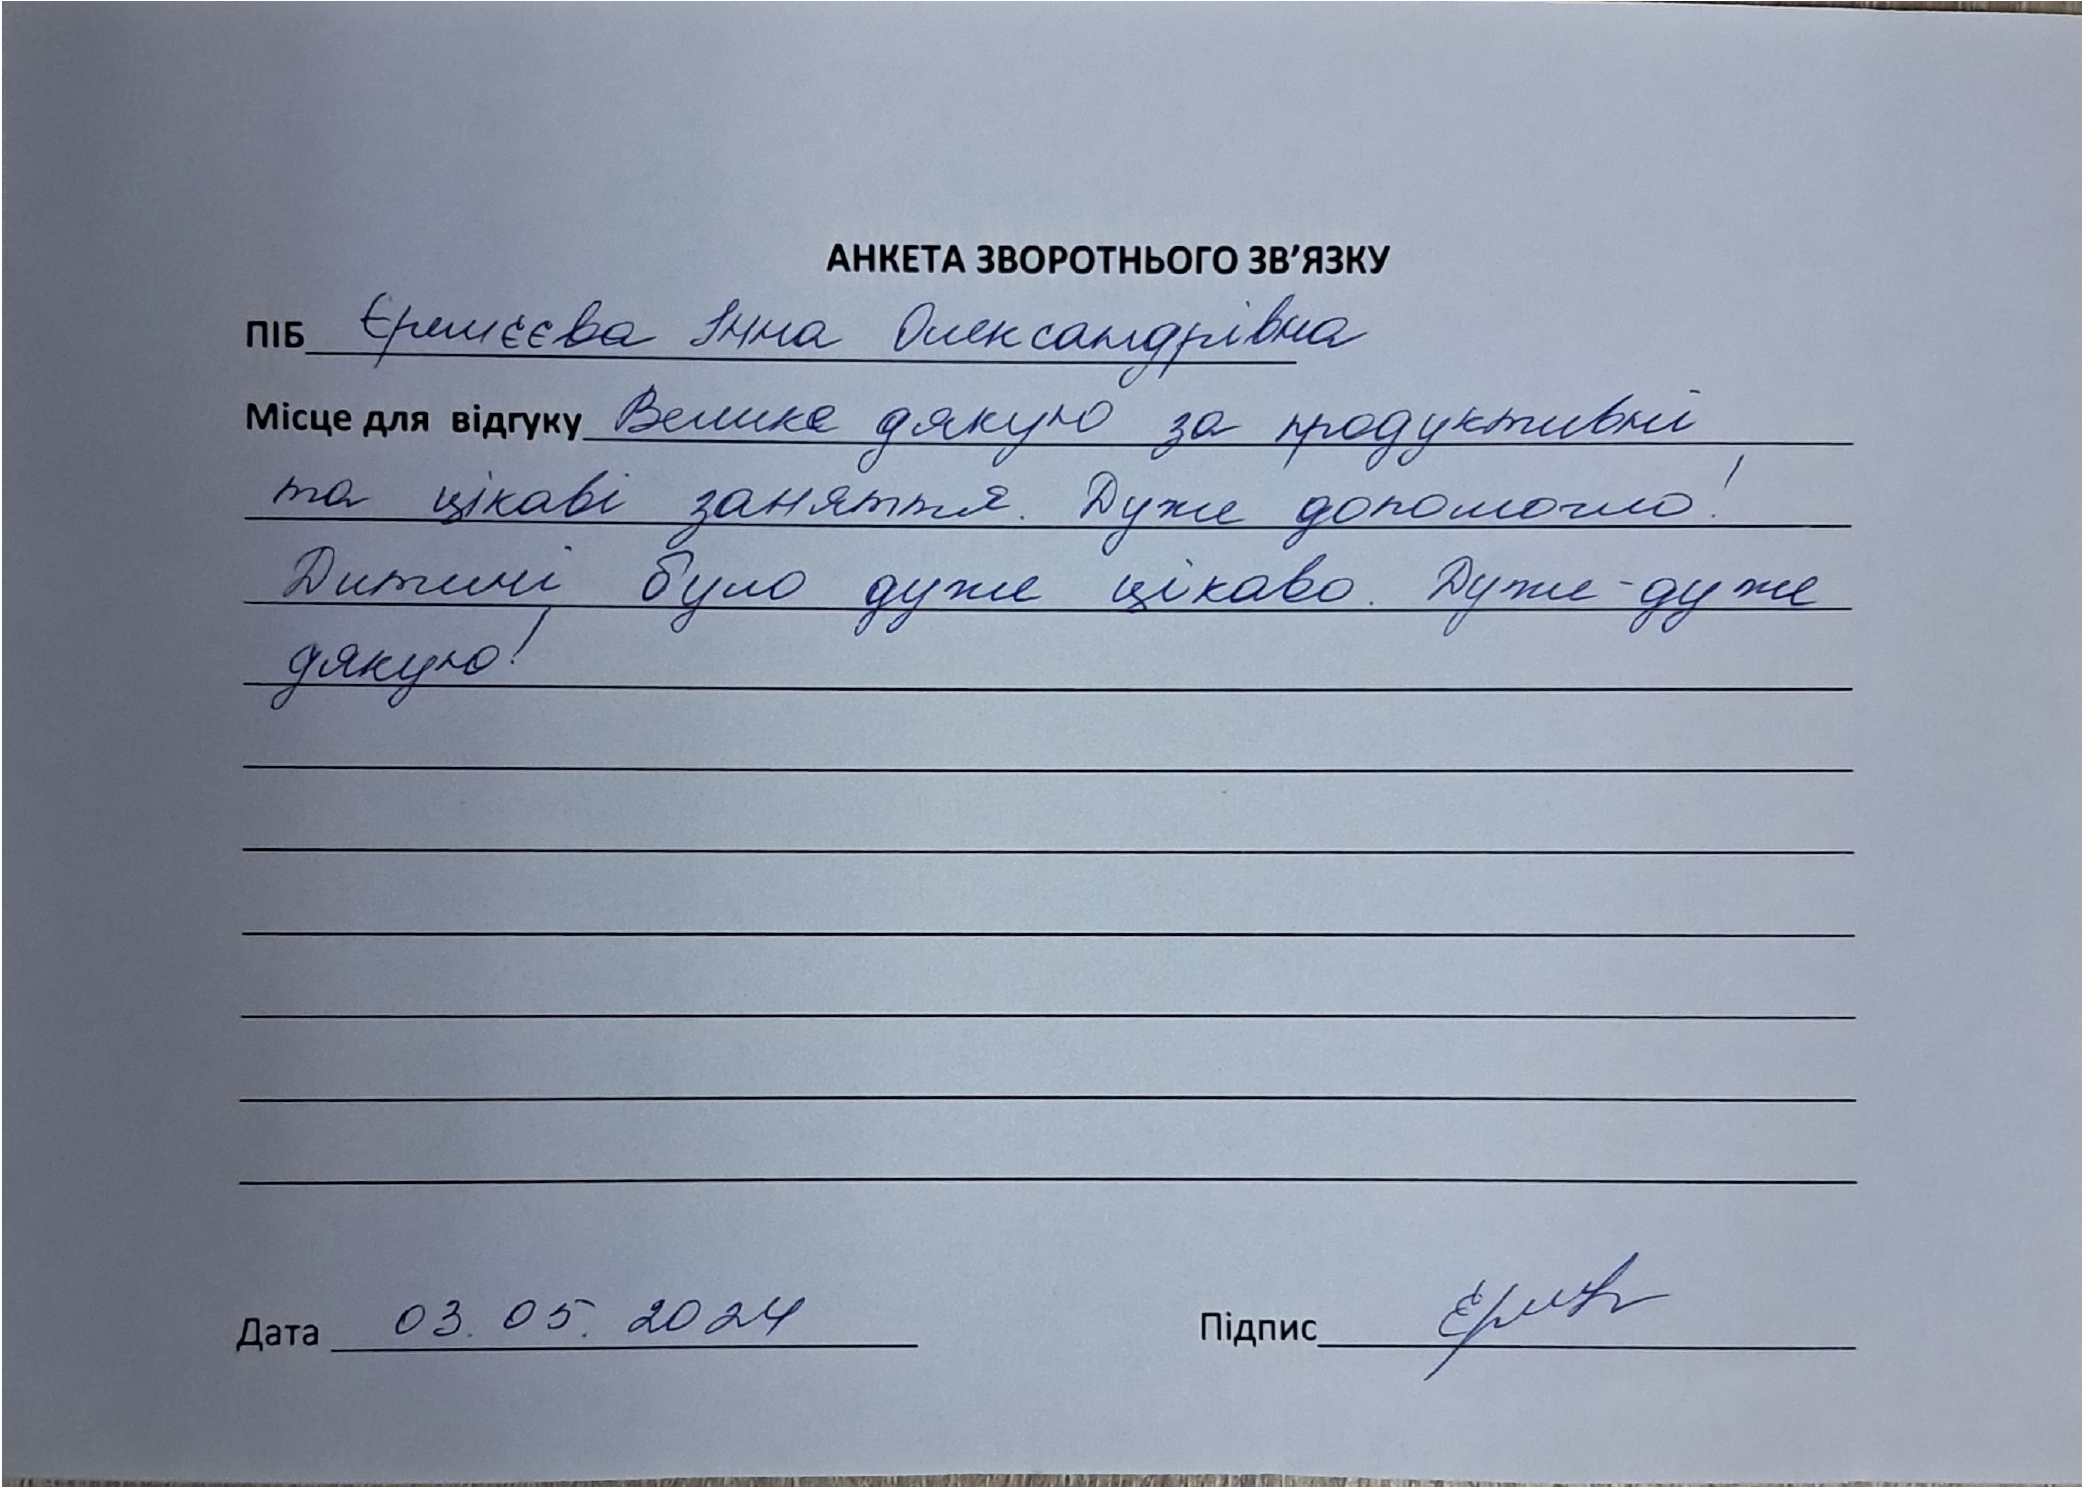 АНКЕТА ЗВОРОТНЬОГО ЗВ’ЯЗКУ
ПІБ Єремєєва Інна Олександрівна
Місце для відгуку Велике дякую за продуктивні
та цікаві заняття. Дуже допомогло!
Дитині було дуже цікаво. Дуже-дуже
дякую!
Дата 03.05.2024 Підпис